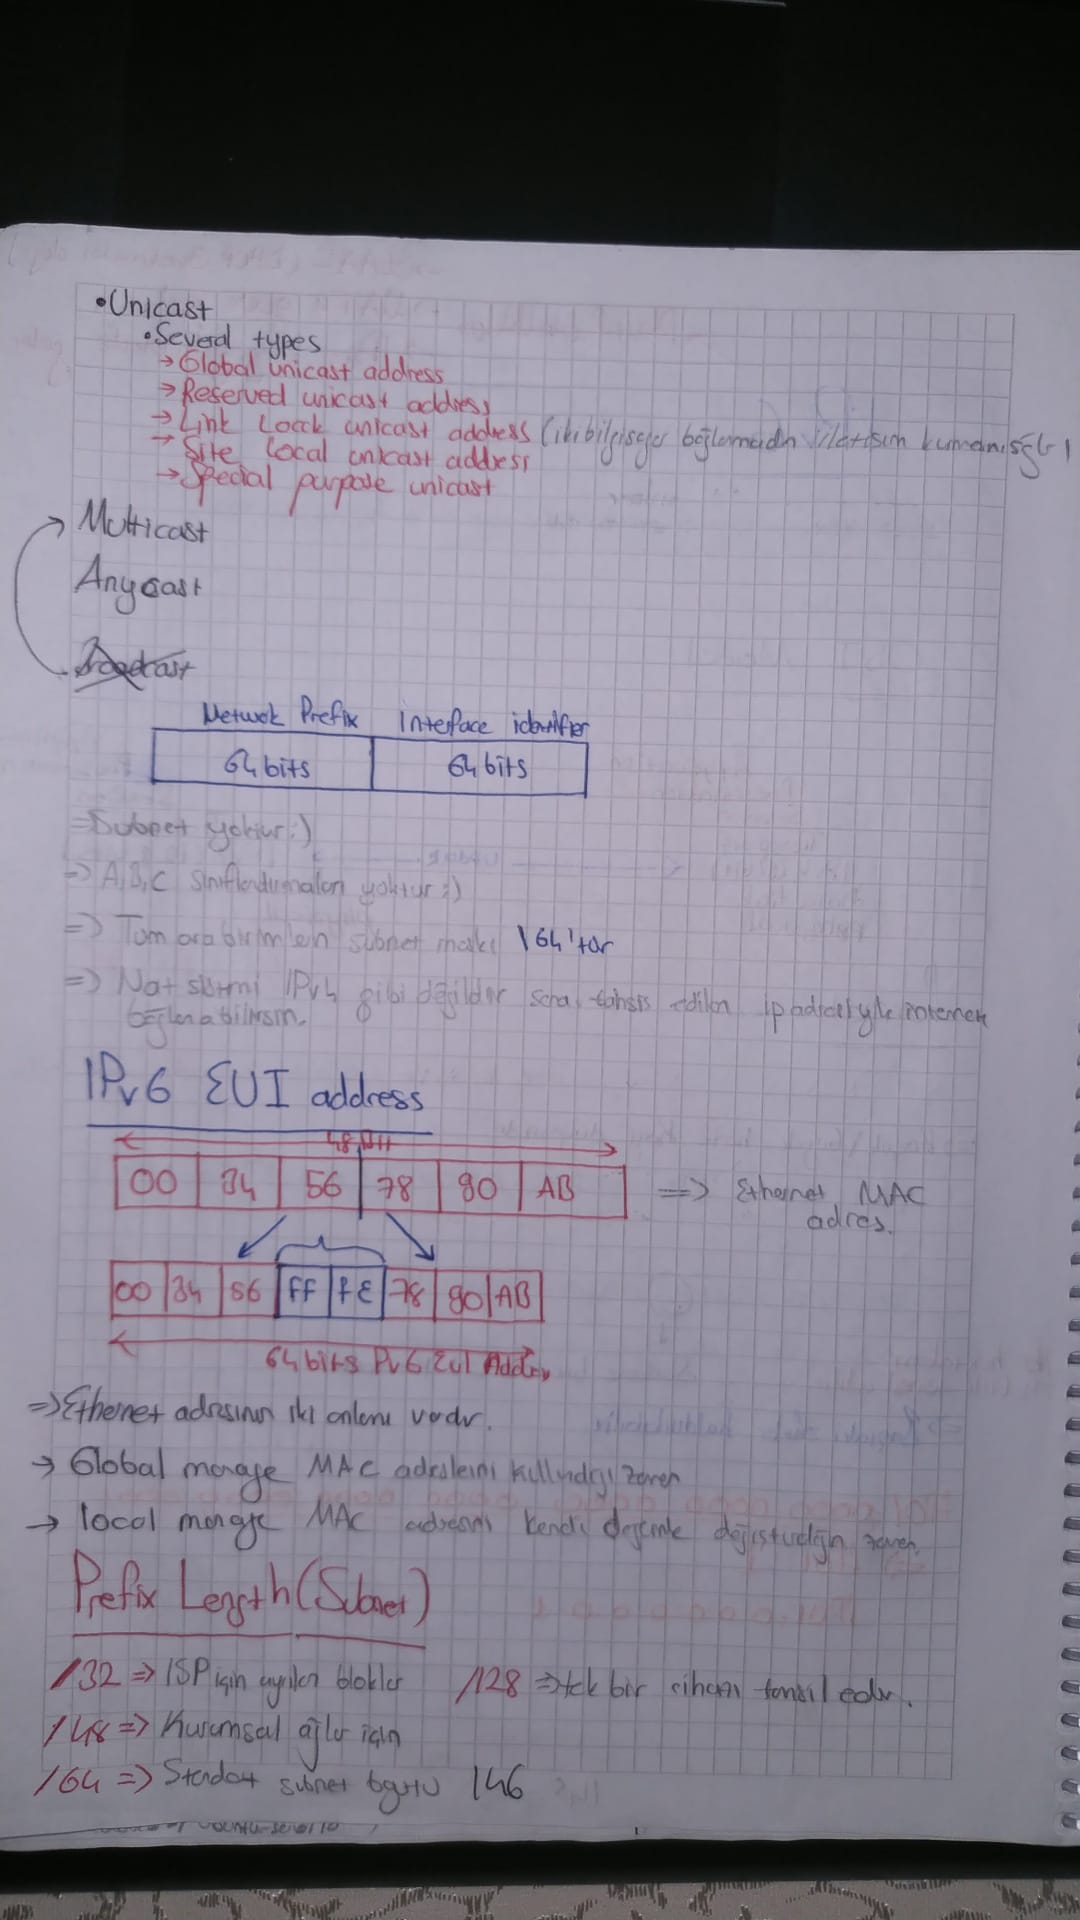 •Unicast
•Several types
→Global unicast address
→Reserved unicast address
→Link Local unicast address (iki bilgisayar bağlamadan iletişim kurmanı sağlar)
→Site local unicast address
→Special purpose unicast
Multicast
Anycast
Broadcast
Network Prefix Interface identifier
64 bits 64 bits
⇒Subnet yoktur:)
⇒ A,B,C sınıflandırmaları yoktur:)
⇒ Tüm ara birimlerin subnet maskı \64'tür
⇒ Nat sistemi IPv4 gibi değildir sana tahsis edilen ip adresiyle internete
bağlanabilirsin.
IPv6 EUI address
48 bit
00 34 56 78 90 AB ⇒ Ethernet MAC
adres.
00 34 56 FF FE 78 90 AB
64 bits IPv6 EUI Address
⇒Ethernet adresinin iki anlamı vardır.
→ Global manage MAC adreslerini kullandığı zaman
→ local manage MAC adresini kendi değerinle değiştirdiğin zaman.
Prefix Length(Subnet)
/32 ⇒ ISP için ayrılan bloklar /128 ⇒tek bir cihazı temsil eder.
/48 ⇒ Kurumsal ağlar için
/64 ⇒ Standart subnet boyutu 146